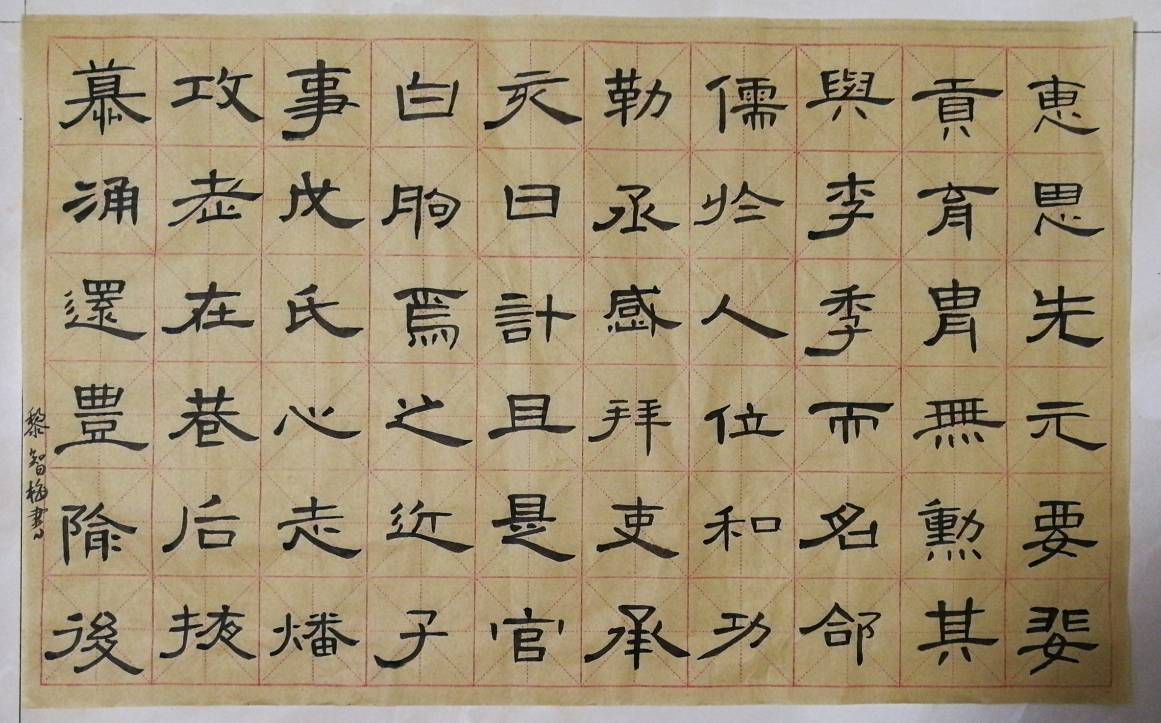 惠思先元要婓
貢育胄無勳其
與李季而名郃
儒於人位和功
勒丞感拜吏承
亥曰計且是官
白朐焉之近子
事戊氏心走燔
攻老在巷后掖
慕涌還豊隃後
黎智梅書